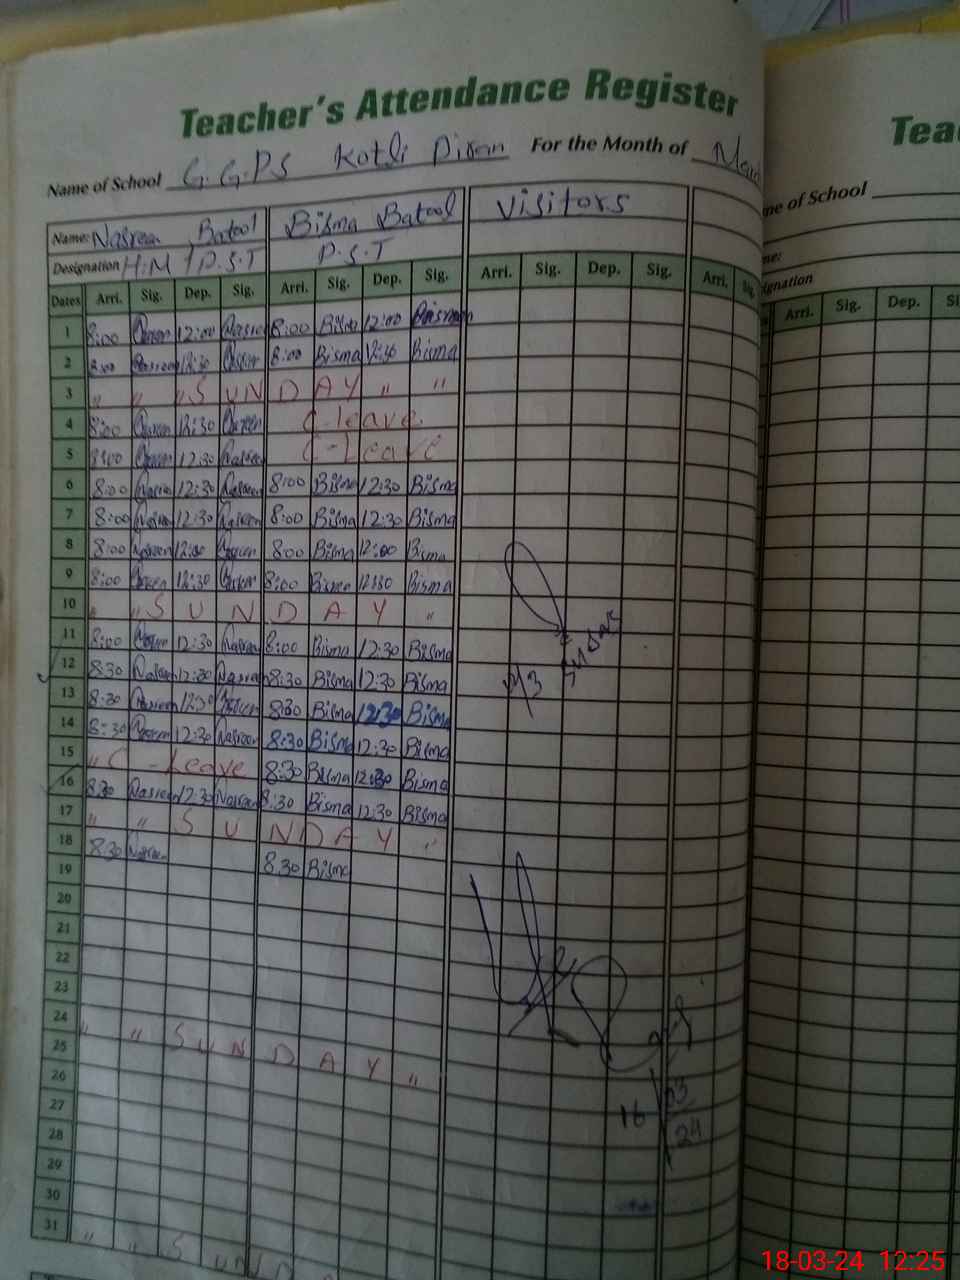 Teacher's Attendance Register
Name of School G.G.P.S Kotli Piran For the Month of
Name: Nasreen Batool Bisma Batool Visitors
Designation H.M / P.S.T P.S.T
Dates Arri. Sig. Dep. Sig. Arri. Sig. Dep. Sig. Arri. Sig. Dep. Sig. Arri. Sig.
1 8:00 12:00 Nasreen 8:00 Bisma 12:00
2 8:00 Nasreen 12:30 8:00 Bisma 12:30 Bisma
3 " " " S U N D A Y " "
4 8:00 12:30 C-leave
5 8:00 12:30 Nasreen C-Leave
6 8:00 Nasreen 12:30 Nasreen 8:00 Bisma 12:30 Bisma
7 8:00 Nasreen 12:30 Nasreen 8:00 Bisma 12:30 Bisma
8 8:00 Nasreen 12:00 8:00 Bisma 12:00 Bisma
9 8:00 12:30 8:00 Bisma 12:30 Bisma
10 " " S U N D A Y "
11 8:00 Nasreen 12:30 Nasreen 8:00 Bisma 12:30 Bisma
12 8:30 Nasreen 12:30 Nasreen 8:30 Bisma 12:30 Bisma
13 8:30 Nasreen 12:30 8:30 Bisma 12:30 Bisma
14 8:30 Nasreen 12:30 Nasreen 8:30 Bisma 12:30 Bisma
15 " C-Leave 8:30 Bisma 12:30 Bisma
16 8:30 Nasreen 12:30 Nasreen 8:30 Bisma 12:30 Bisma
17 " " S U N D A Y "
18 8:30 Nasreen 8:30 Bisma
19
20
21
22
23
24 " " S U N D A Y "
25
26
27
28
29
30
31 " " S U N D
16/03/24
Tea
me of School
me:
ignation
Arri. Sig. Dep. Si
18-03-24 12:25